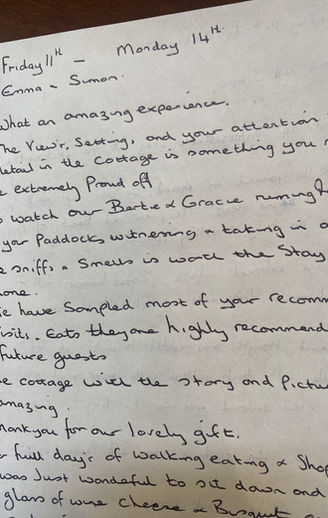 Friday 11th - Monday 14th.
Emma & Simon.
What an amazing experience.
The View's, Setting, and your attention
detail in the Cottage is something you
e extremely Proud off
watch our Bertie & Gracie running
your Paddocks witnessing & taking in a
e sniffs & Smells is worth the Stay
one.
e have Sampled most of your recomm
isits. Eats they are highly recommend
future guests
e cottage with the story and Pictu
amazing.
hankyou for our lovely gift.
full day's of walking eating & Shop
was Just wonderful to sit down and
glass of wine cheese & Bisquit